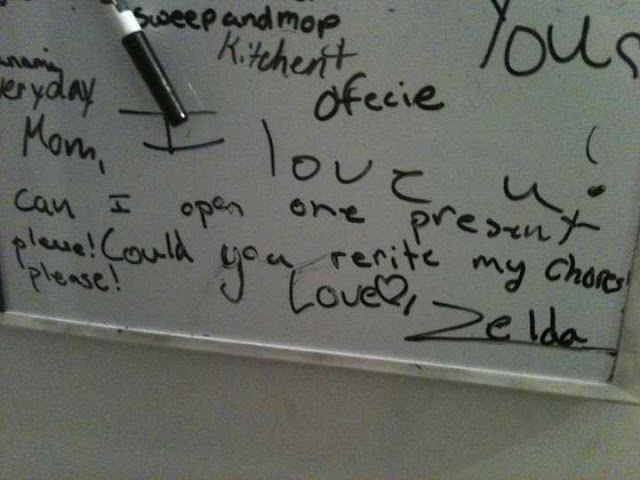 sweep and mop
Your
Kitchen+
eryday
ofecie
Mom, I love u!
can I open one present
please! Could you rerite my chores
please!
Love♡,
Zelda